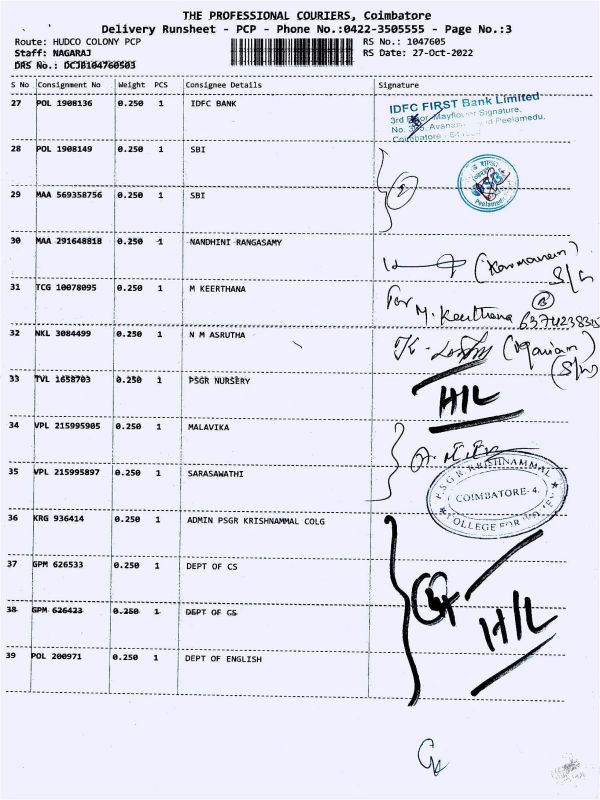 THE PROFESSIONAL COURIERS, Coimbatore
Delivery Runsheet - PCP - Phone No.:0422-3505555 - Page No.:3
Route: HUDCO COLONY PCP RS No.: 1047605
Staff: NAGARAJ RS Date: 27-Oct-2022
DRS No.: DCJB104760503
S No Consignment No Weight PCS Consignee Details Signature
27 POL 1908136 0.250 1 IDFC BANK
IDFC FIRST Bank Limited
3rd Floor, Mayflower Signature,
Peelamedu,
Coimbatore
28 POL 1908149 0.250 1 SBI
29 MAA 569358756 0.250 1 SBI
30 MAA 291648818 0.250 1 NANDHINI RANGASAMY
31 TCG 10078095 0.250 1 M KEERTHANA
For M. Keerthana
32 NKL 3084499 0.250 1 N M ASRUTHA
33 TVL 1658703 0.250 1 PSGR NURSERY
H/L
34 VPL 215995905 0.250 1 MALAVIKA
35 VPL 215995897 0.250 1 SARASAWATHI
P S G R KRISHNAMMAL
COIMBATORE-4.
COLLEGE FOR WOMEN
36 KRG 936414 0.250 1 ADMIN PSGR KRISHNAMMAL COLG
37 GPM 626533 0.250 1 DEPT OF CS
38 GPM 626423 0.250 1 DEPT OF CS
H/L
39 POL 200971 0.250 1 DEPT OF ENGLISH